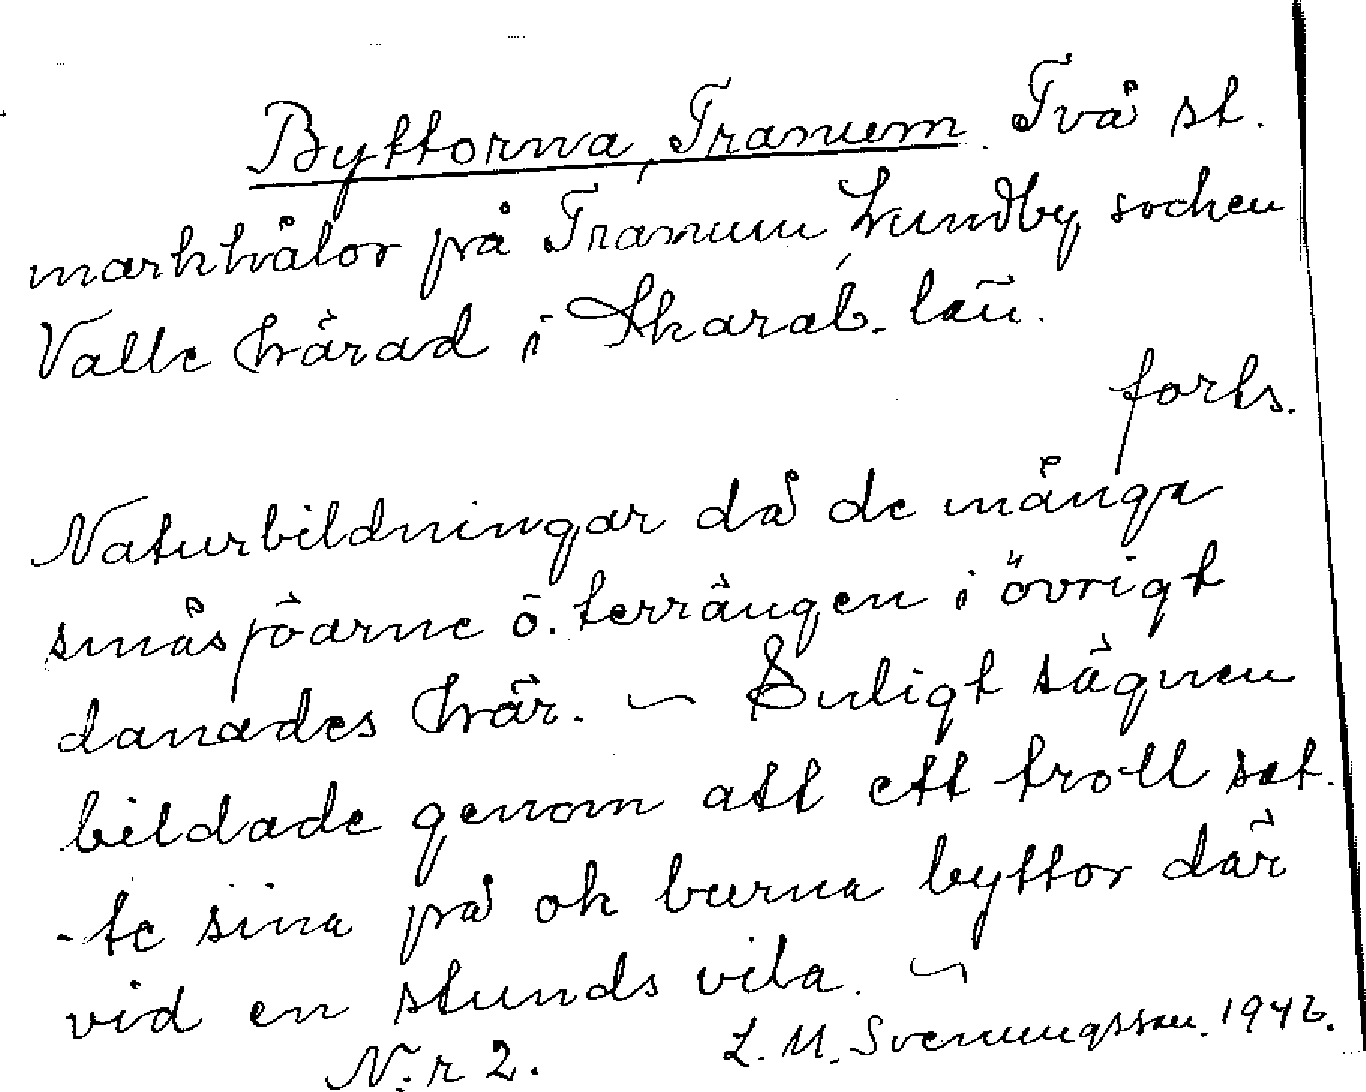 Byttorna, Tranum. Två st.
markhålor på Tranum Lundby, socken
Valle härad i Skarab. län.
forts.
Naturbildningar då de många
småsjöarne o. terrängen i övrigt
danades här. – Enligt sägnen
bildade genom att ett troll sat-
-te sina på ok burna byttor där
vid en stunds vila. –
N:r 2. L. M. Svenungsson. 1942.